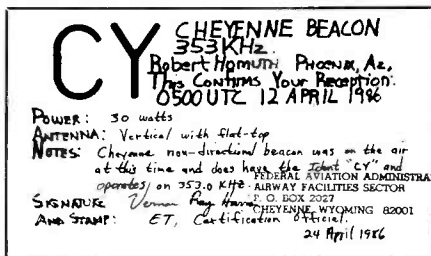 CY
CHEYENNE BEACON
353 KHz.
Robert Homuth Phoenix, Az.
This Confirms Your Reception:
0500 UTC 12 APRIL 1986
POWER: 30 watts
ANTENNA: Vertical with flat-top
NOTES: Cheyenne non-directional beacon was on the air
at this time and does have the Ident "CY" and
operates on 353.0 KHz.
FEDERAL AVIATION ADMINISTRA
AIRWAY FACILITIES SECTOR
P. O. BOX 2027
CHEYENNE, WYOMING 82001
SIGNATURE Vernon Ray
AND STAMP: ET, Certification Official.
24 April 1986